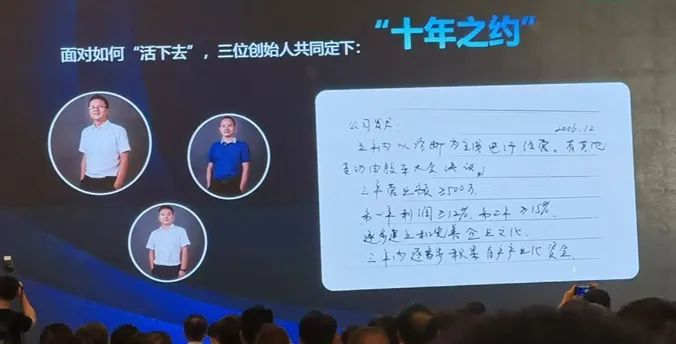 面对如何“活下去”，三位创始人共同定下：
“十年之约”
公司发展：
2006.12
三年内以诊断为主攻进行经营。有其他
变动由股东大会决议。
三年营业额≥500万
第一年利润≥12%，第二年≥15%
逐步建立和完善企业文化。
三年内逐步积累自产产业化资金